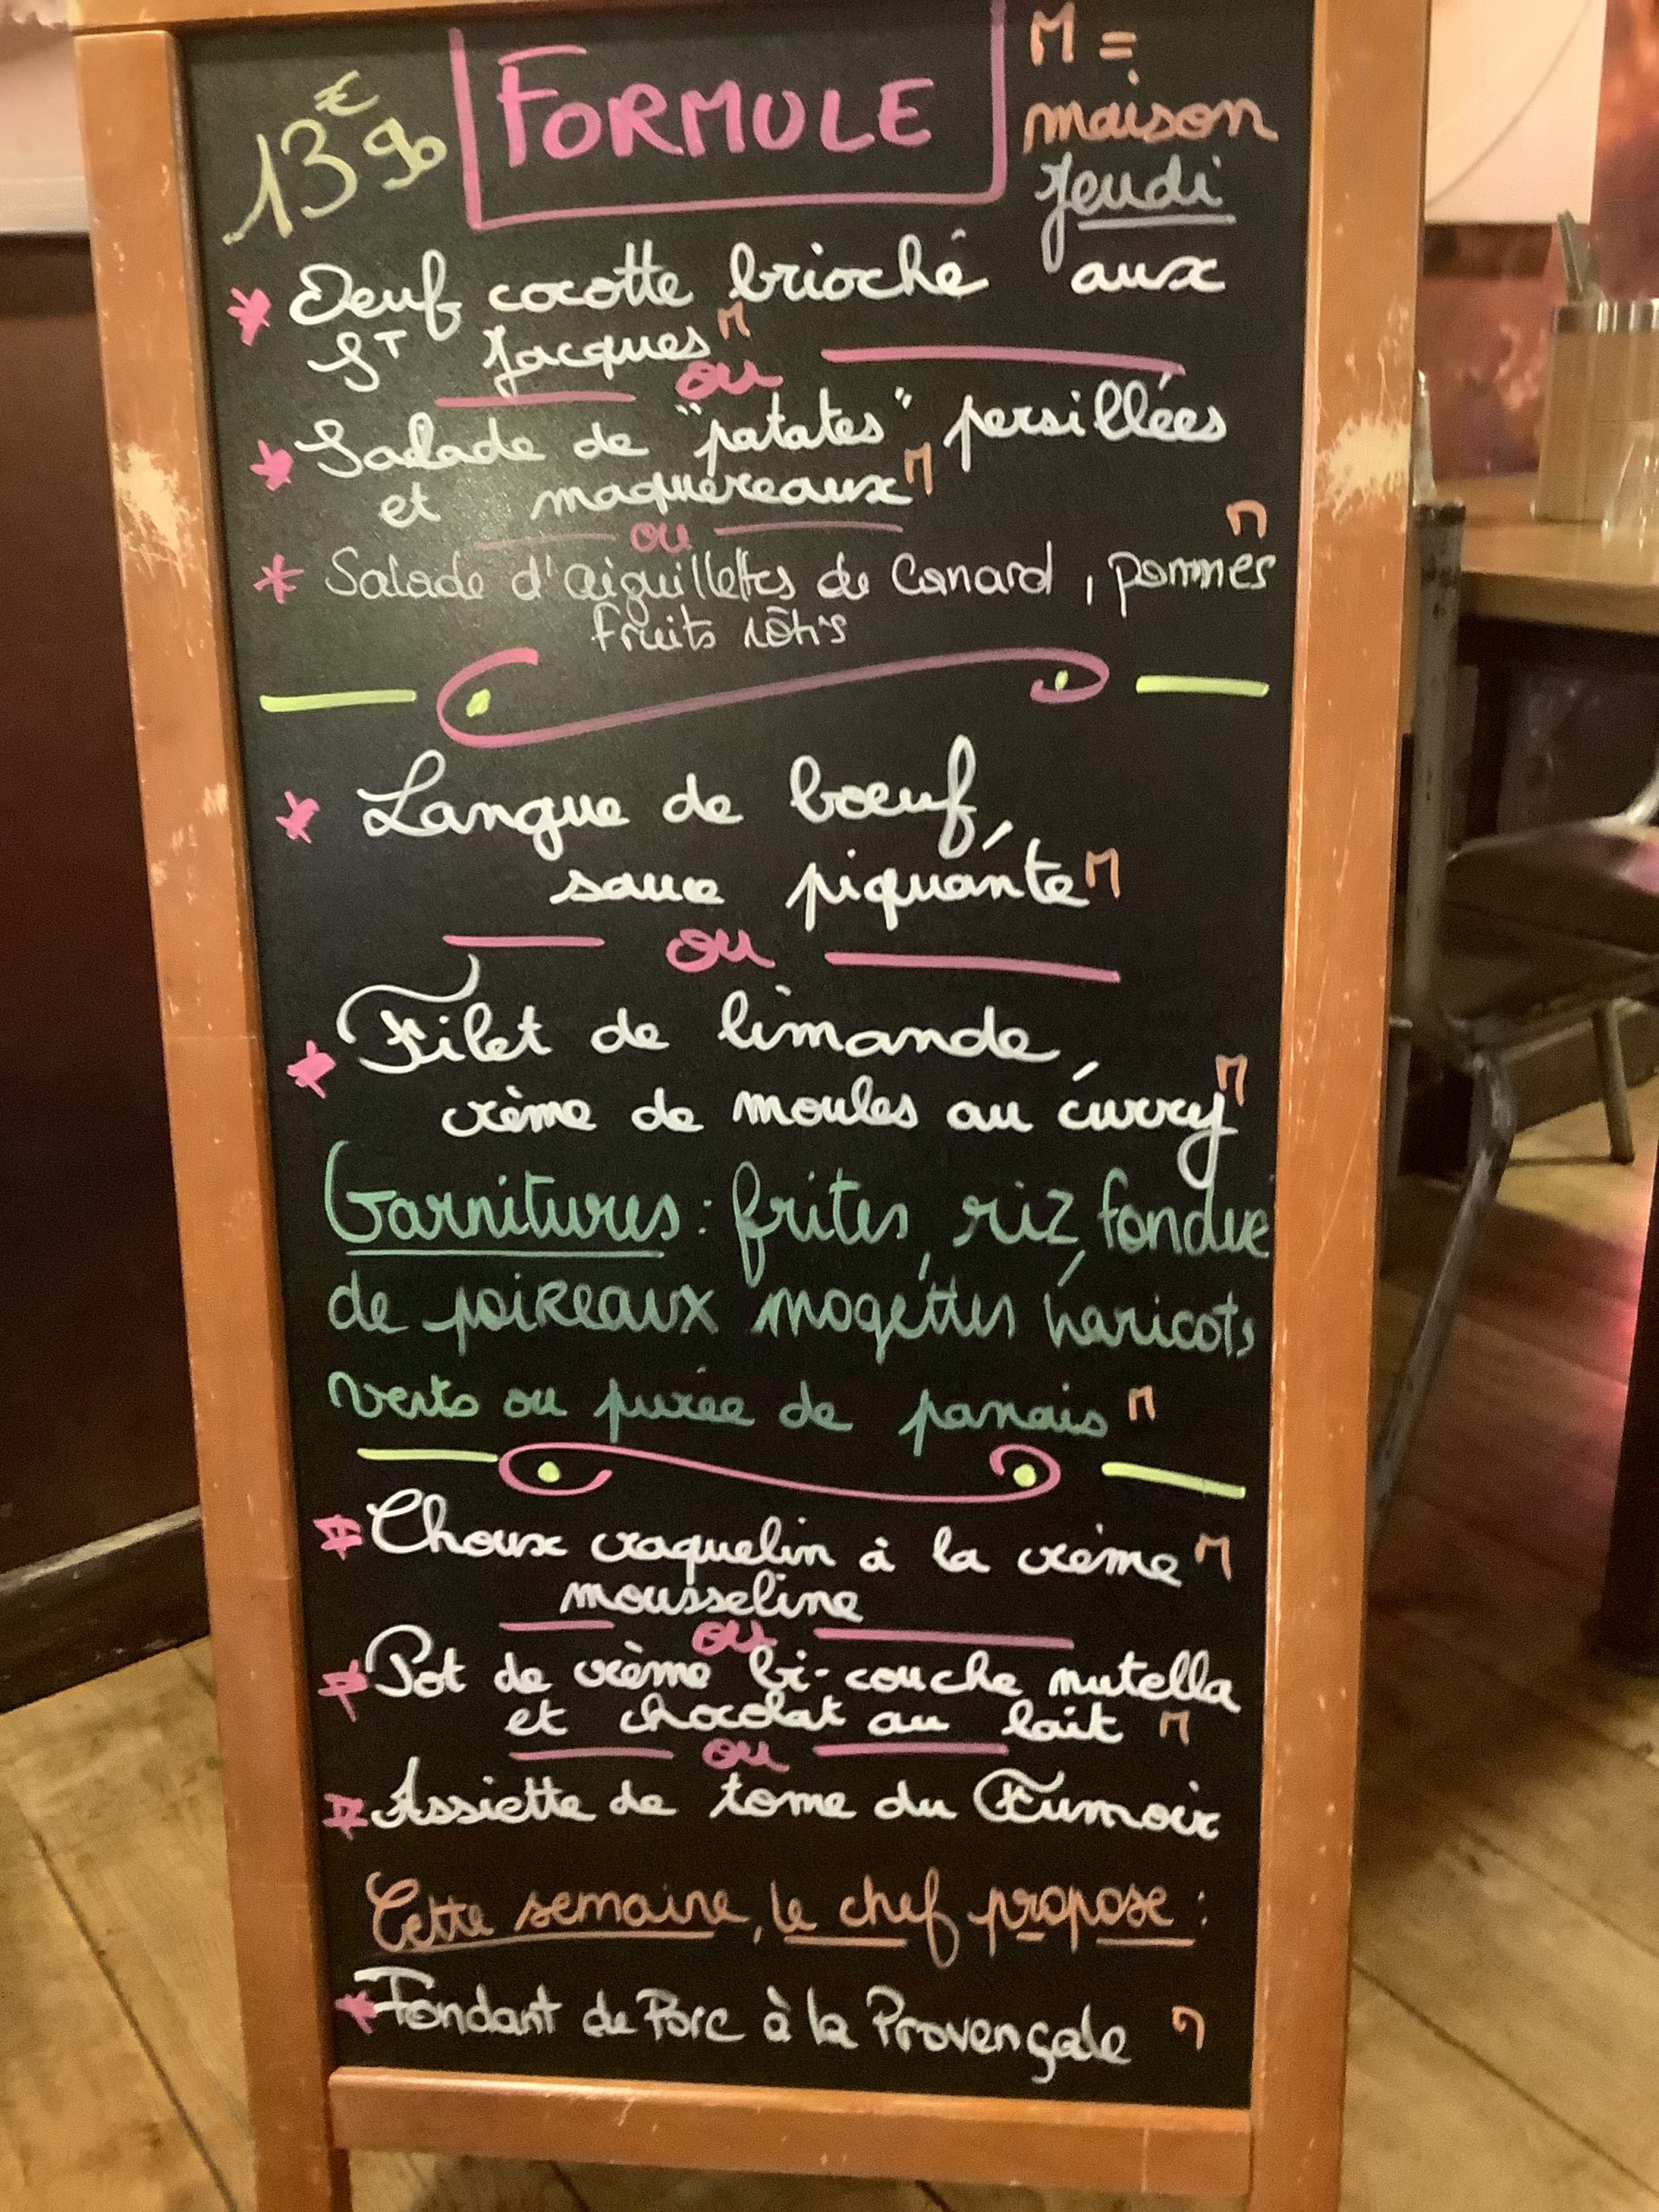 13€90
FORMULE
M =
maison
Jeudi
* Oeuf cocotte brioché aux
St Jacques M
ou
* Salade de "patates" persillées
et maquereaux M
ou
* Salade d'aiguillettes de Canard, pommes M
fruits rôtis
* Langue de boeuf,
sauce piquante M
ou
* Filet de limande,
crème de moules au curry M
Garnitures : frites, riz, fondue
de poireaux mogettes haricots
verts ou purée de panais M
* Choux craquelin à la crème M
mousseline
ou
* Pot de crème bi-couche nutella
et chocolat au lait M
ou
* Assiette de tome du Fumoir
Cette semaine, le chef propose :
* Fondant de Porc à la Provençale M